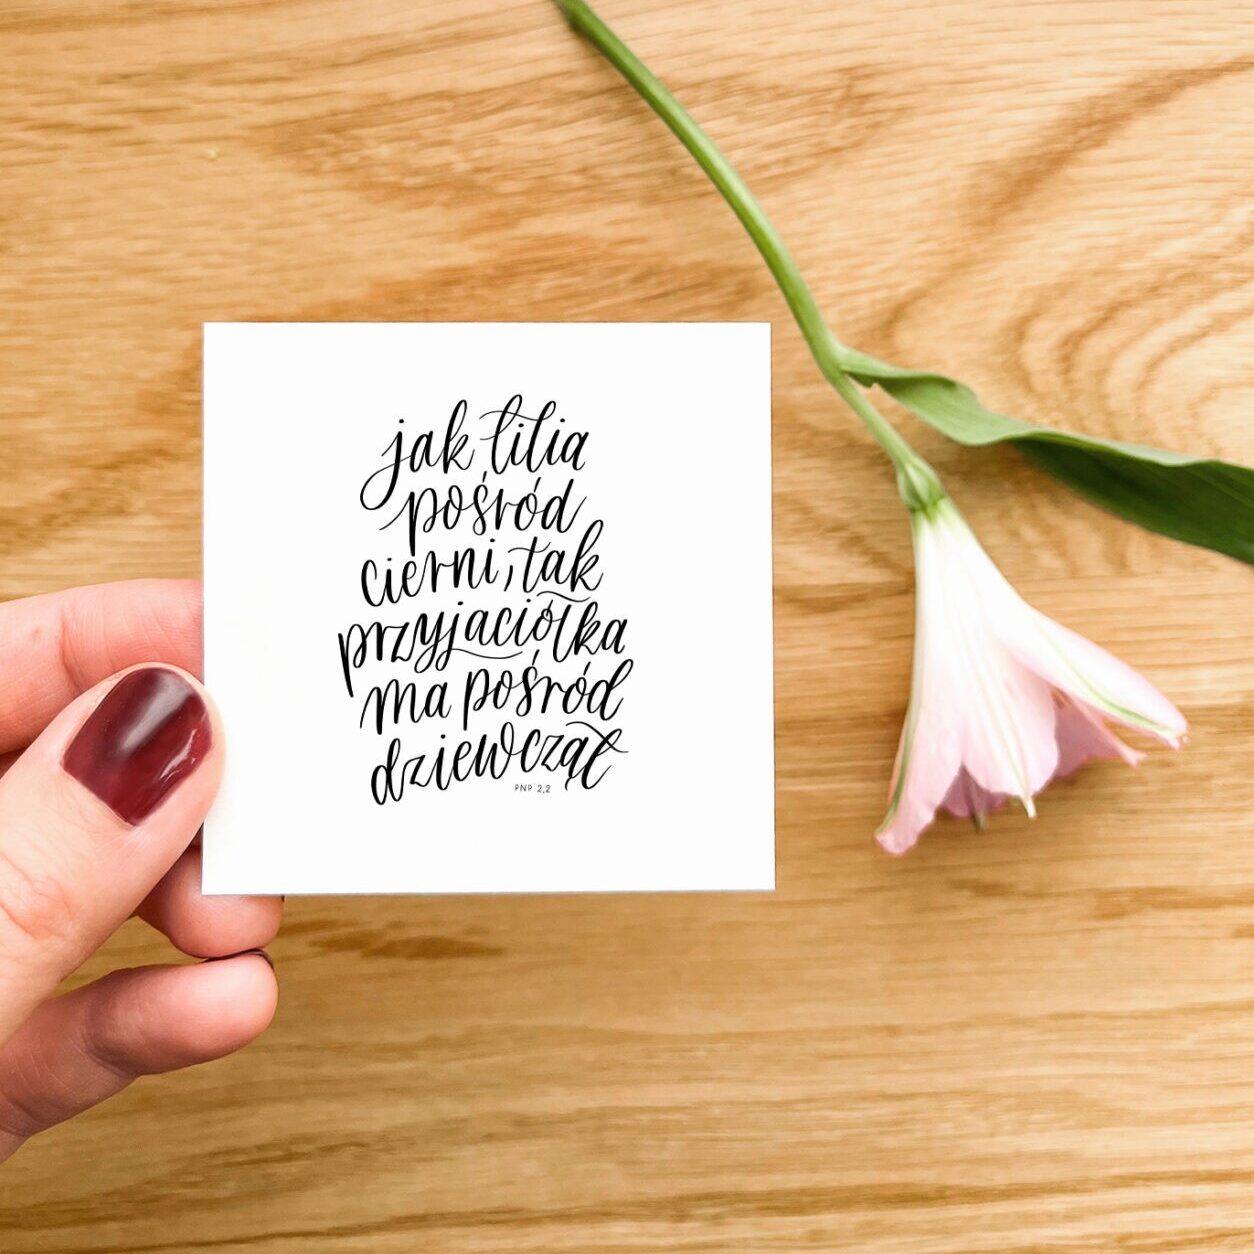 jak lilia
pośród
cierni, tak
przyjaciółka
ma pośród
dziewcząt
PNP 2,2